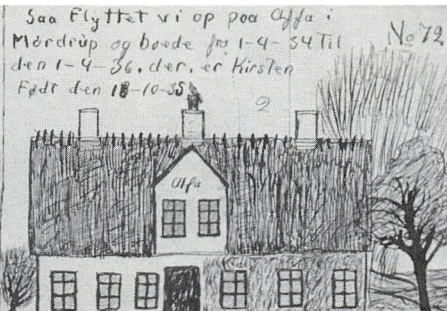 Saa Flyttet vi op paa Alfa i
Mørdrup og boede fra 1-4-34 Til
No 72
den 1-4-36, der, er Kirsten
Født den 18-10-35
2
Alfa